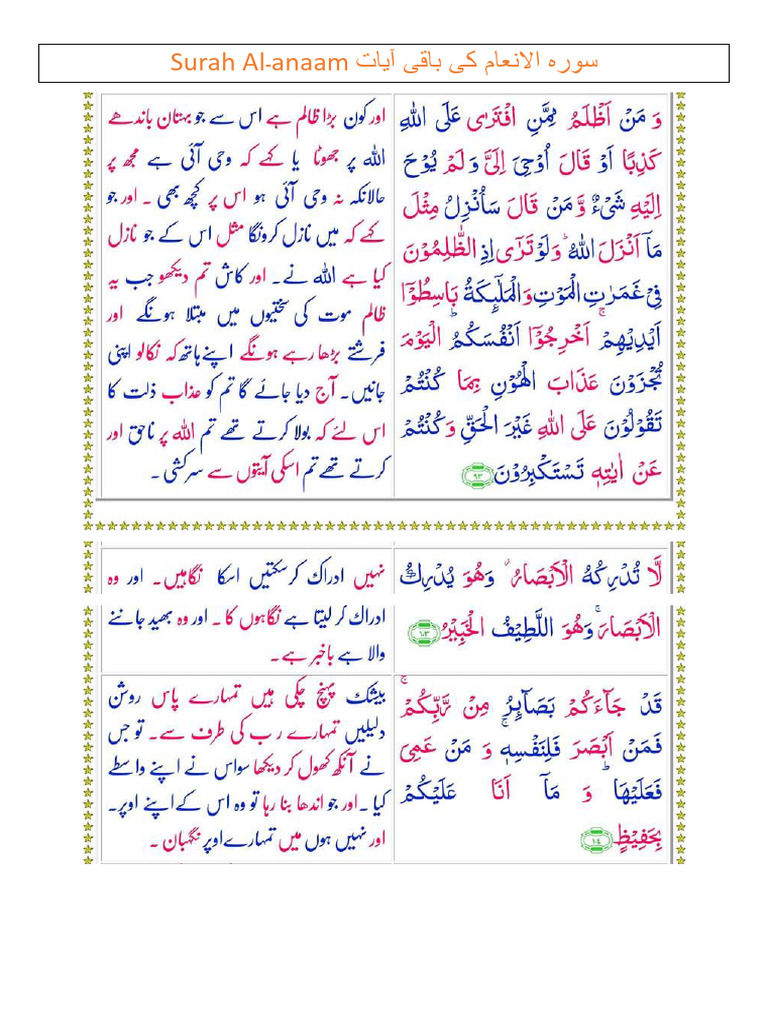 Surah Al-anaam سورہ الانعام کی باقی آیات
وَ مَنْ اَظْلَمُ مِمَّنِ افْتَرٰى عَلَى اللّٰهِ
كَذِبًا اَوْ قَالَ اُوْحِيَ اِلَيَّ وَ لَمْ يُوْحَ
اِلَيْهِ شَيْءٌ وَّ مَنْ قَالَ سَاُنْزِلُ مِثْلَ
مَاۤ اَنْزَلَ اللّٰهُ ؕ وَلَوْ تَرٰۤى اِذِ الظّٰلِمُوْنَ
فِيْ غَمَرٰتِ الْمَوْتِ وَالْمَلٰٓىِٕكَةُ بَاسِطُوْۤا
اَيْدِيْهِمْ ۚ اَخْرِجُوْۤا اَنْفُسَكُمْ ؕ اَلْيَوْمَ
تُجْزَوْنَ عَذَابَ الْهُوْنِ بِمَا كُنْتُمْ
تَقُوْلُوْنَ عَلَى اللّٰهِ غَيْرَ الْحَقِّ وَ كُنْتُمْ
عَنْ اٰيٰتِهٖ تَسْتَكْبِرُوْنَ ۹۳
اور کون بڑا ظالم ہے اس سے جو بہتان باندھے
اللہ پر جھوٹا یا کہے کہ وحی آئی ہے مجھ پر
حالانکہ نہ وحی آئی ہو اس پر کچھ بھی ۔ اور جو
کہے کہ میں نازل کرونگا مثل اس کے جو نازل
کیا ہے اللہ نے۔ اور کاش تم دیکھو جب یہ
ظالم موت کی سختیوں میں مبتلا ہونگے اور
فرشتے بڑھا رہے ہونگے اپنے ہاتھ کہ نکالو اپنی
جانیں۔ آج دیا جائے گا تم کو عذاب ذلت کا
اس لئے کہ بولا کرتے تھے تم اللہ پر ناحق اور
کرتے تھے تم اسکی آیتوں سے سرکشی ۔
لَا تُدْرِكُهُ الْاَبْصَارُ ۫ وَهُوَ يُدْرِكُ
الْاَبْصَارَ ۚ وَهُوَ اللَّطِيْفُ الْخَبِيْرُ ۱۰۳
نہیں ادراک کرسکتیں اسکا نگاہیں۔ اور وہ
ادراک کر لیتا ہے نگاہوں کا ۔ اور وہ بھید جاننے
والا ہے باخبر ہے۔
قَدْ جَآءَكُمْ بَصَآىِٕرُ مِنْ رَّبِّكُمْ ۚ
فَمَنْ اَبْصَرَ فَلِنَفْسِهٖ ۚ وَ مَنْ عَمِيَ
فَعَلَيْهَا ؕ وَ مَاۤ اَنَا عَلَيْكُمْ
بِحَفِيْظٍ ۱۰۴
بیشک پہنچ چکی ہیں تمہارے پاس روشن
دلیلیں تمہارے ر ب کی طرف سے۔ تو جس
نے آنکھ کھول کر دیکھا سواس نے اپنے واسطے
کیا ۔ اور جو اندھا بنا رہا تو وہ اس کے اپنے اوپر۔
اور نہیں ہوں میں تمہارے اوپر نگہبان ۔